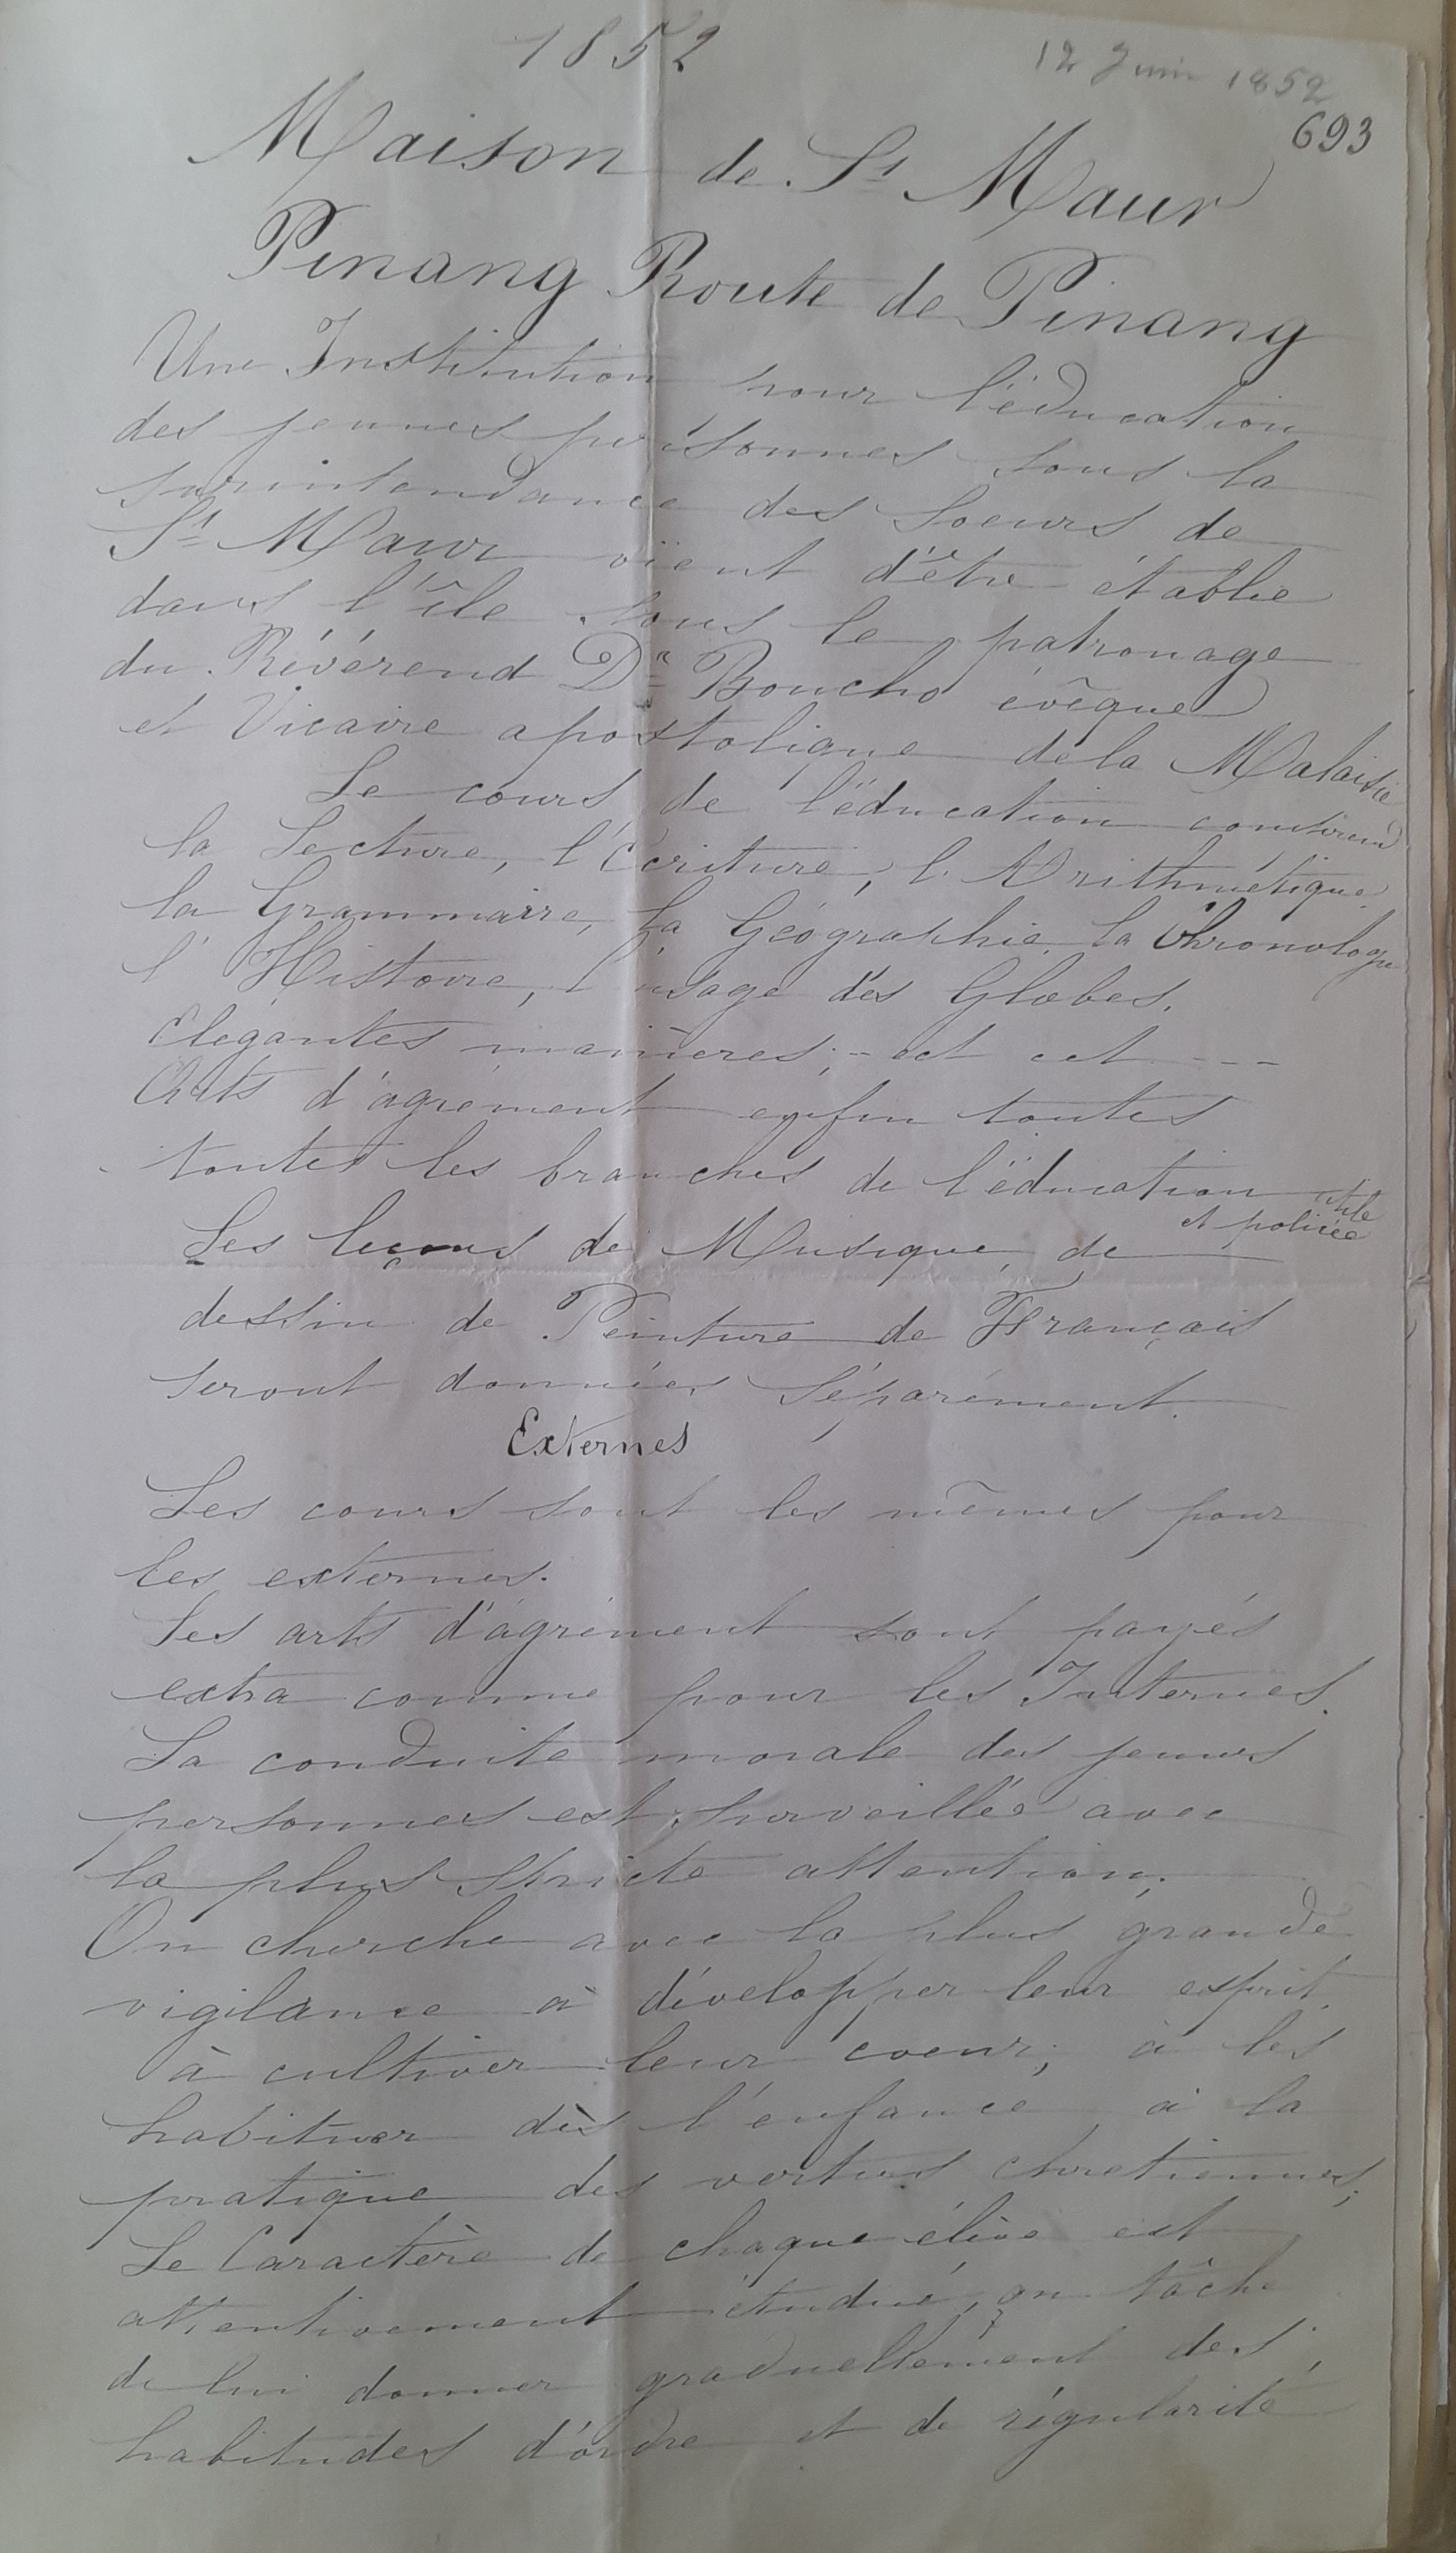 1852
12 Juin 1852
693
Maison de St Maur
Pinang Route de Pinang
Une Institution pour l'éducation
des jeunes personnes sous la
surintendance des Soeurs de
St Maur vient d'être établie
dans l'île sous le patronage
du Révérend Dr Boucho évêque
et Vicaire apostolique de la Malaisie
Le cours de l'éducation comprend
la Lecture, l'Écriture, l'Arithmétique,
la Grammaire, la Géographie, la Chronologie
l'Histoire, l'usage des Globes.
Elegantes manières; - ect ect ---
Arts d'agrément enfin toutes
toutes les branches de l'éducation utile
et polície
Les leçons de Musique, de
dessin de Peinture de Français
seront données séparément.
Externes
Les cours sont les mêmes pour
les externes.
Les arts d'agrément sont payés
extra comme pour les Internes.
La conduite morale des jeunes
personnes est surveillée avec
la plus stricte attention.
On cherche avec la plus grande
vigilance à développer leur esprit,
à cultiver leur coeur; à les
habituer dès l'enfance à la
pratique des vertus chretiennes;
Le Caractère de chaque élève est
attentivement étudié, on tâche
de lui donner graduellement des
habitudes d'ordre et de régularité